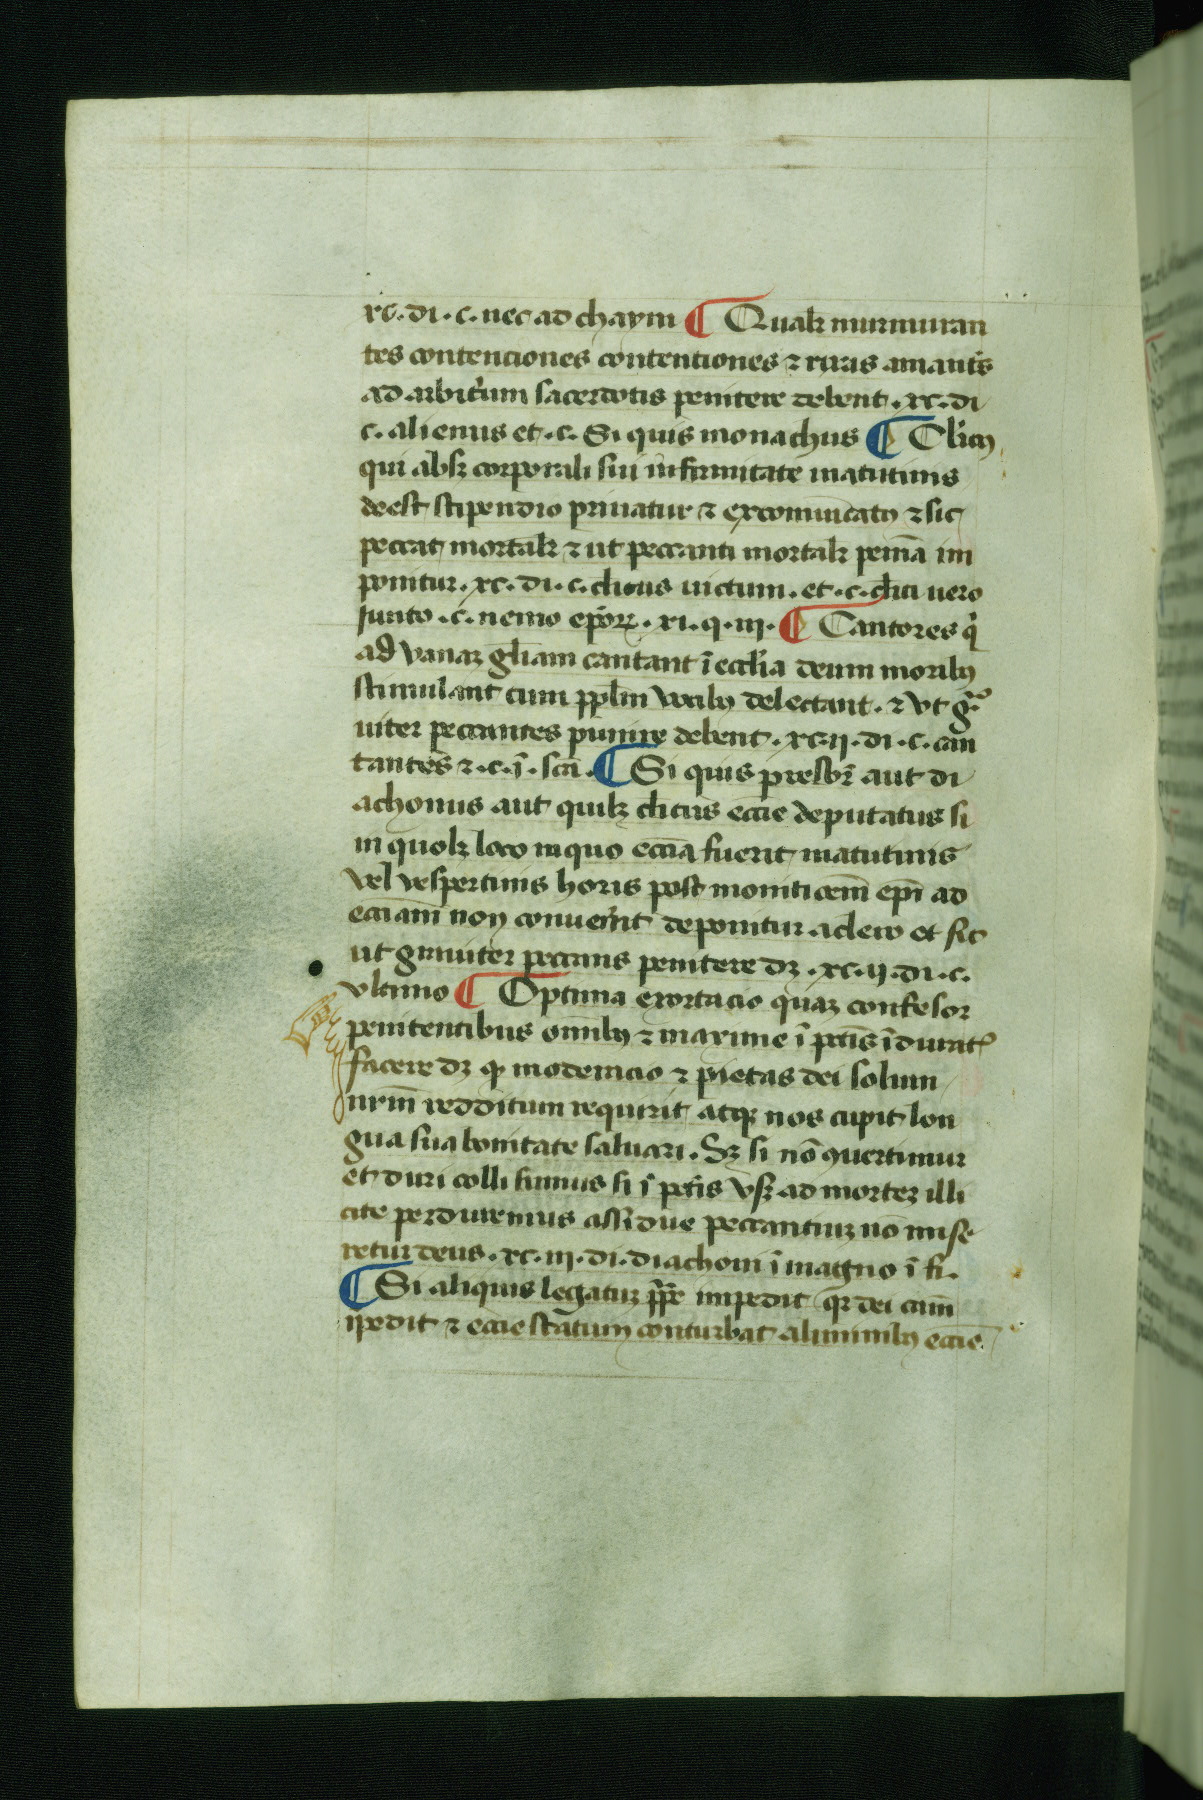 xc · di · c · nec ad chaym ¶ Qualr murmuran
tes contenciones contentiones ⁊ rixas amant̉s
ad arbit̉um sacerdotis penitere debent · xc · di
c · alienus et · c · Si quis monachus ¶ Cl̉icꝰ
qui absꝫ corporali sui infirmitate matutinis
deest stipendio priuatur ⁊ excom̄unicatꝰ ⁊ sic
peccat mortalr ⁊ ut peccanti mortalr penīa im
ponitur · xc · di · c · clicus uictum · et · c · clici uero
iunto · c · nemo ep̄oꝝ · xi · q · iii · ¶ Cantores q̉
ad vanaꝫ gl̄iam cantant ī eccl̉ia deum moribꝰ
stimulant cum pp̄lm vocibꝰ delectant · ⁊ vt g̊ͣ
uiter peccantes punire debent · xc · ii · di · c · can
tantes ⁊ · c · ī · sc̄a · ¶ Si quis presbr̄ aut di
achonus aut quilꝫ clicus ecc̄ie deputatus si
in quolꝫ loco in quo ecc̄ia fuerit matutinis
vel vespertinis horis post moniticem̄ ep̄i ad
ecc̄iam non conuen̉it deponitur a clero et sic
ut grauiter peccans penitere dꝫ · xc · ii · di · c ·
vltimo ¶ Optima exortacio quaꝫ confesor
penitentibus om̄ibꝰ ⁊ maxime ī pc̄tis īdurat̉
facere dꝫ ꝙ moderacio ⁊ pietas dei solum
nr̄m redditum requirit atqꝫ nos cupit lon
gua sua bonitate saluari · Sꝫ si nō ꝯuertimur
et duri colli sumus si ī pc̄tis vsqꝫ ad morteꝫ illi
cite perduremus assidue peccantiuꝫ nō mise
retur deus · xc · iii · di · diachoni ī magno ī fi ·
¶ Si aliquis legatuꝫ pp̄e impedit qr dei cām
īpedit ⁊ ecc̄ie statum conturbat ab om̄ibꝰ ecc̄ie